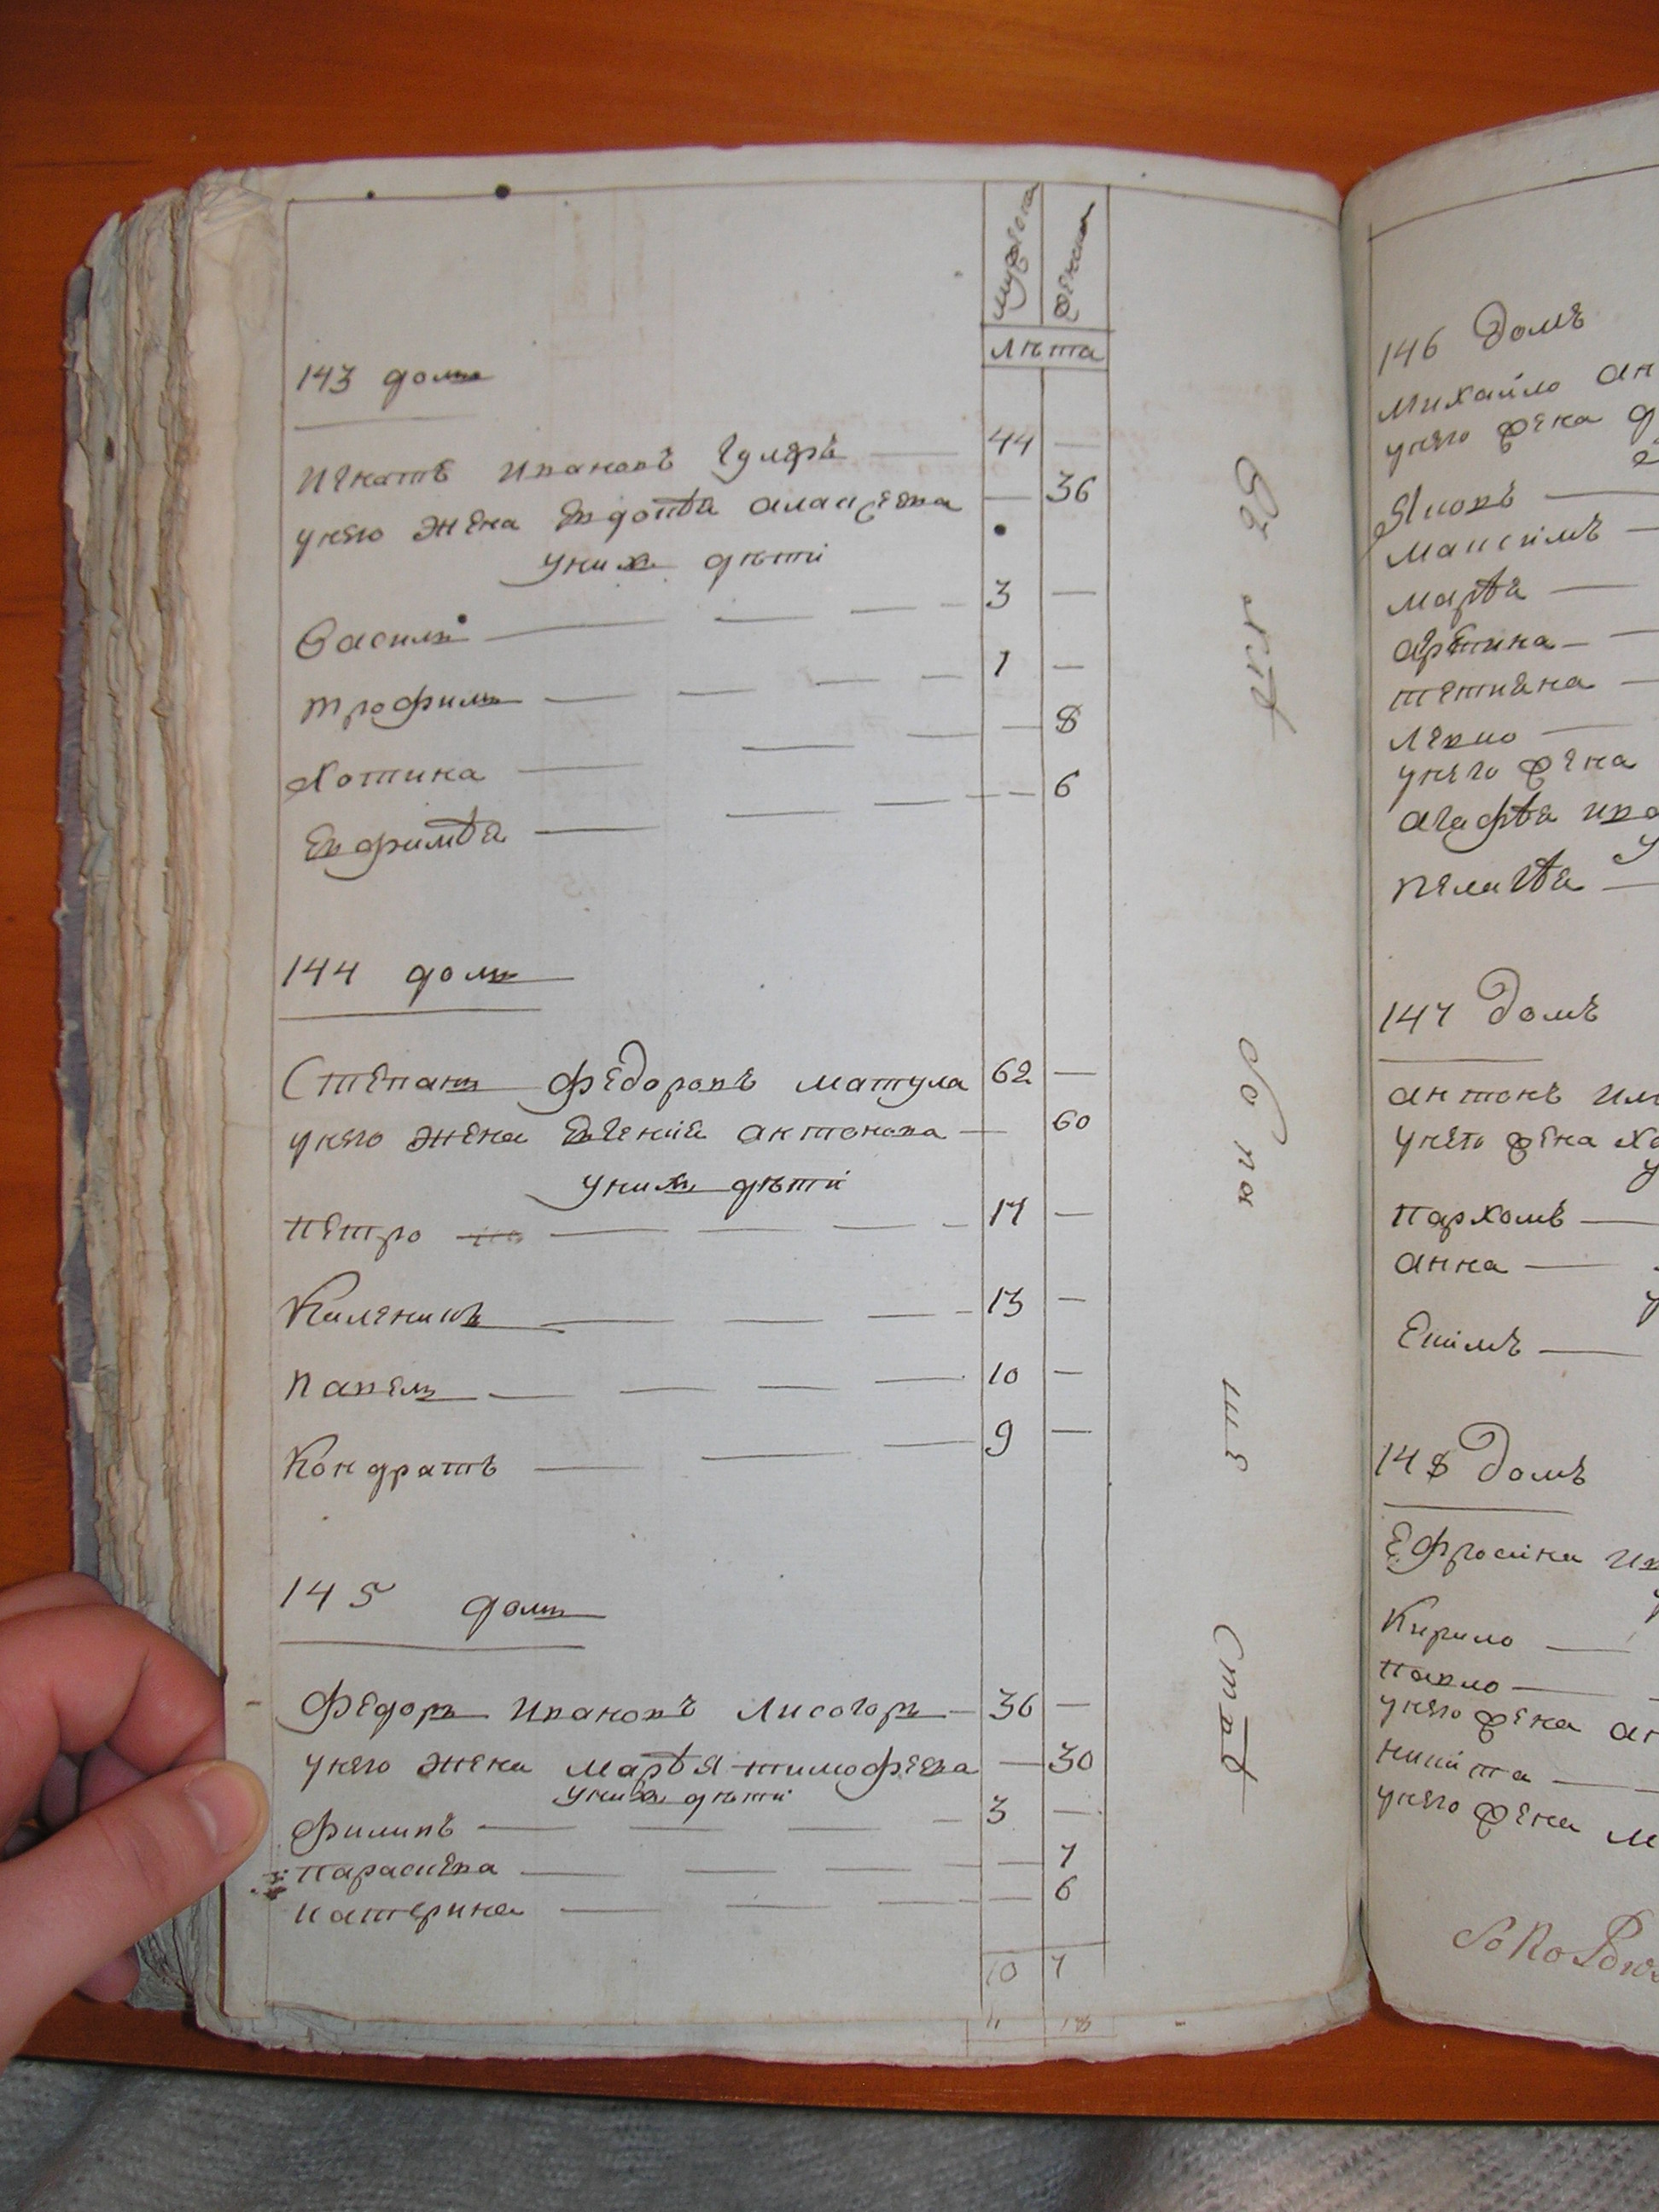 мужеска
женска
лѣта
143 домъ
Игнатъ Ивановъ Гуляръ — 44 —
унего жена Евдокѣя Алексеева — 36
унихъ дѣти
Василь — 3 —
трофимъ — 1 —
Хотина — 8
Евфимѣя — 6
144 домъ
Степанъ Федоровъ матула 62 —
унего жена Евгенія антонова — 60
унихъ дѣти
петро — 17 —
Киленикъ — 13 —
павелъ — 10 —
Кондратъ — 9 —
145 домъ
Федоръ Ивановъ Лисогоръ — 36 —
унего жена марѣя тимофеева — 30
унихъ дѣти
филипъ — 3 —
параскева — 7
катерина — 6
10 7
146 домъ
михайло ан
унего жена
Яковъ —
максімъ —
марѣя —
тетиана —
левко —
унего жена
агафѣя ива
пелагѣя —
147 домъ
антонъ
унего жена хо
пархомъ —
анна —
Екімъ —
148 домъ
Ефросіна ив
Кирило —
павло —
унего жена ан
никита —
унего жена м